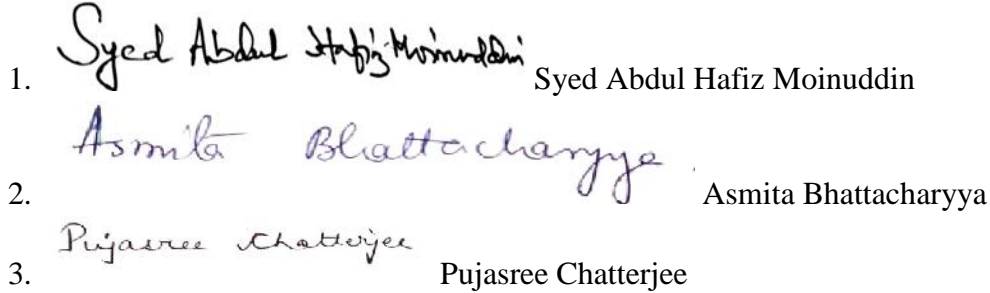 1. Syed Abdul Hafiz Moinuddin Syed Abdul Hafiz Moinuddin
2. Asmita Bhattacharyya. Asmita Bhattacharyya
3. Pujasree Chatterjee Pujasree Chatterjee